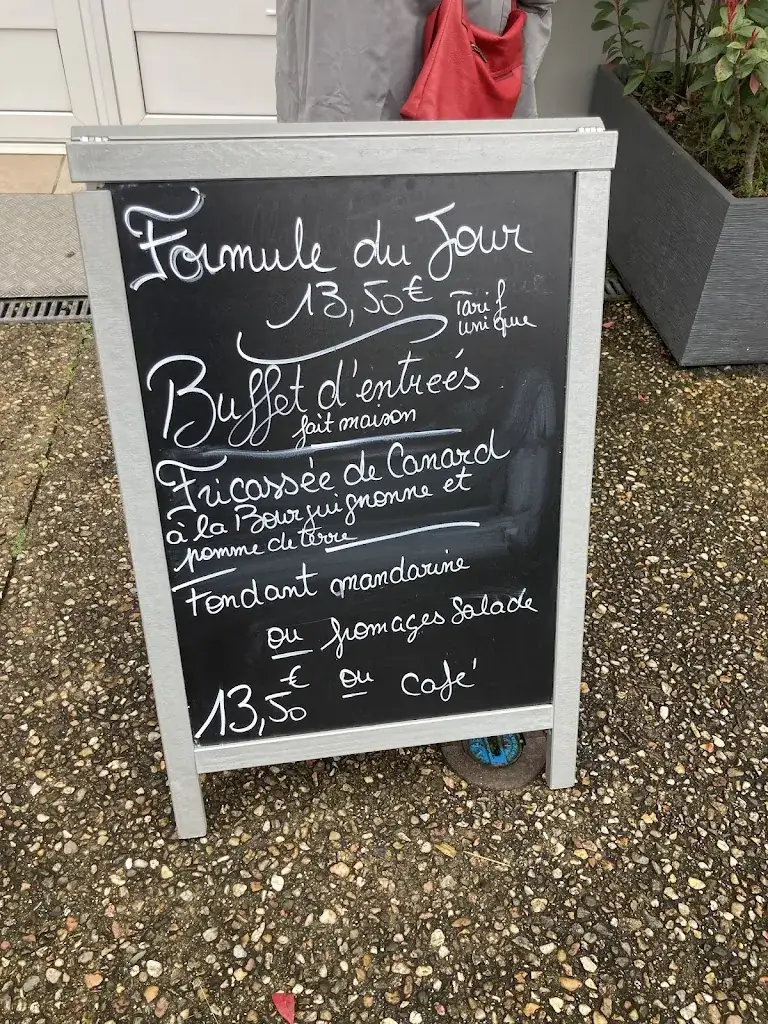 Formule du Jour
13,50€ Tarif
unique
Buffet d'entreés
fait maison
Fricassée de Canard
à la Bourguignonne et
pomme de terre
Fondant mandarine
ou fromages Salade
13,50 € ou café